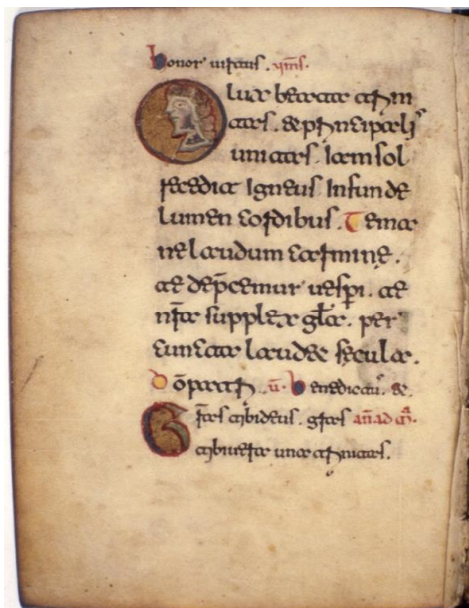 honor uirtus. ymns.
O lux beata trini
tas. et principalis
unitas. Iam sol
recedit igneus Infunde
lumen cordibus. Te ma
ne laudum carmine.
te deprecemur uespri. te
nra supplex gla. per
cuncta laudet secula.
do patri. v. Benedicam.
Gras tibi deus. gras an ad m.
tibi uera una trinitas.